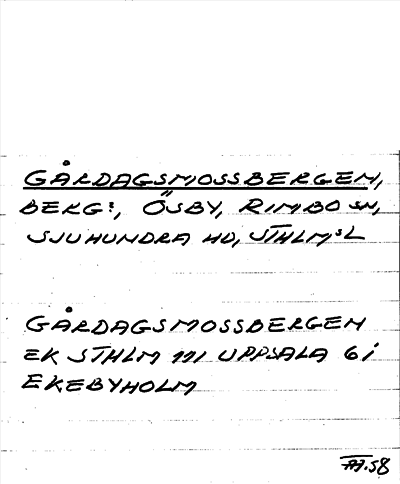 GÅRDAGSMOSSBERGEN,
BERG:, ÖSBY, RIMBO SN,
SJUHUNDRA HD, STHLMSL
GÅRDAGSMOSSBERGEN
EK STHLM 111 UPPSALA 6 i
EKEBYHOLM
.58